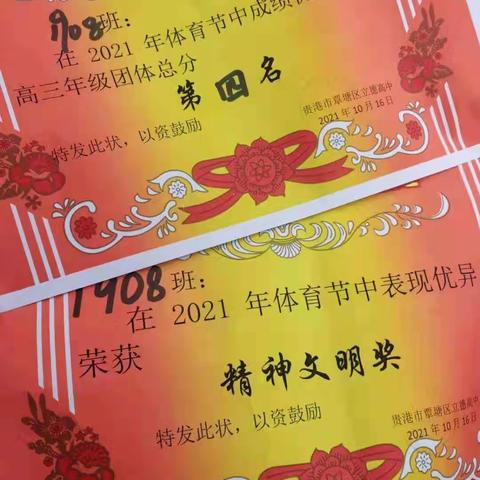 1908班：
在 2021 年体育节中成绩
高三年级团体总分
第四名
特发此状，以资鼓励
贵港市覃塘区立德高中
2021年10月16日
1908班：
在 2021 年体育节中表现优异
荣获
精神文明奖
特发此状，以资鼓励
贵港市覃塘区立德高中
2021年10月16日